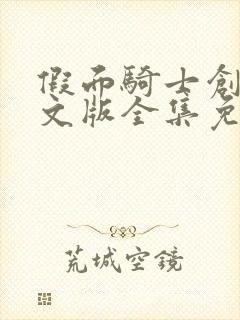 假面騎士創
文版全集免
荒城空鏡